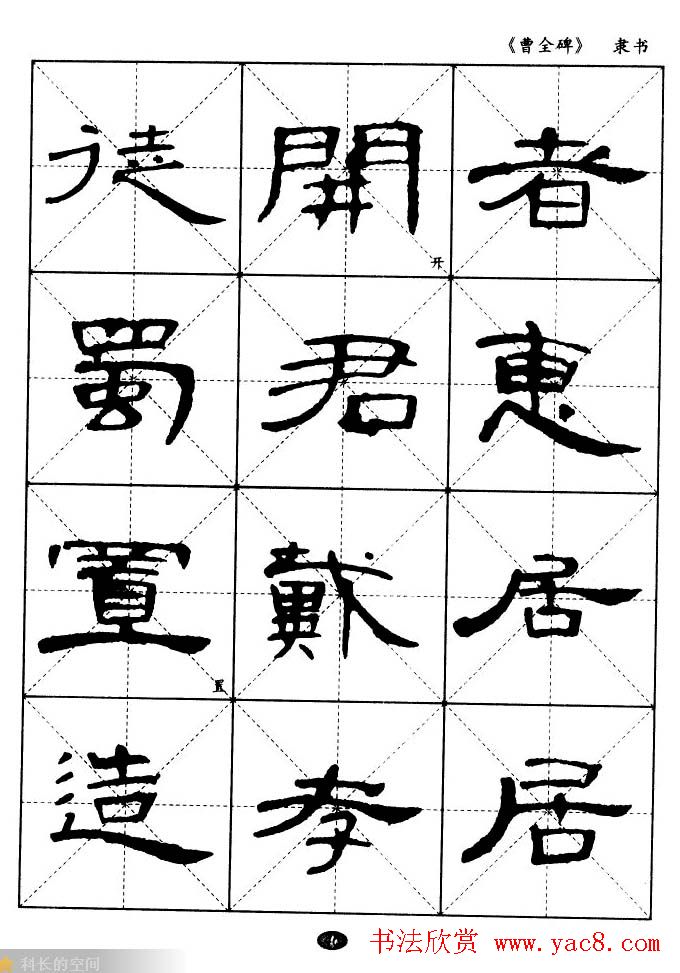 《曹全碑》 隶书
徒 開 者
开
蜀 君 惠
置 戴 居
置
造 孝 居
书法欣赏 www.yac8.com
科长的空间